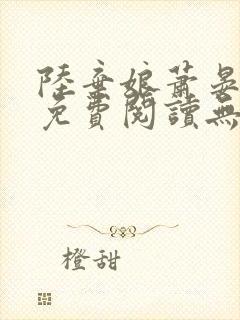 陸棄娘蕭晏
免費閱讀無
橙甜